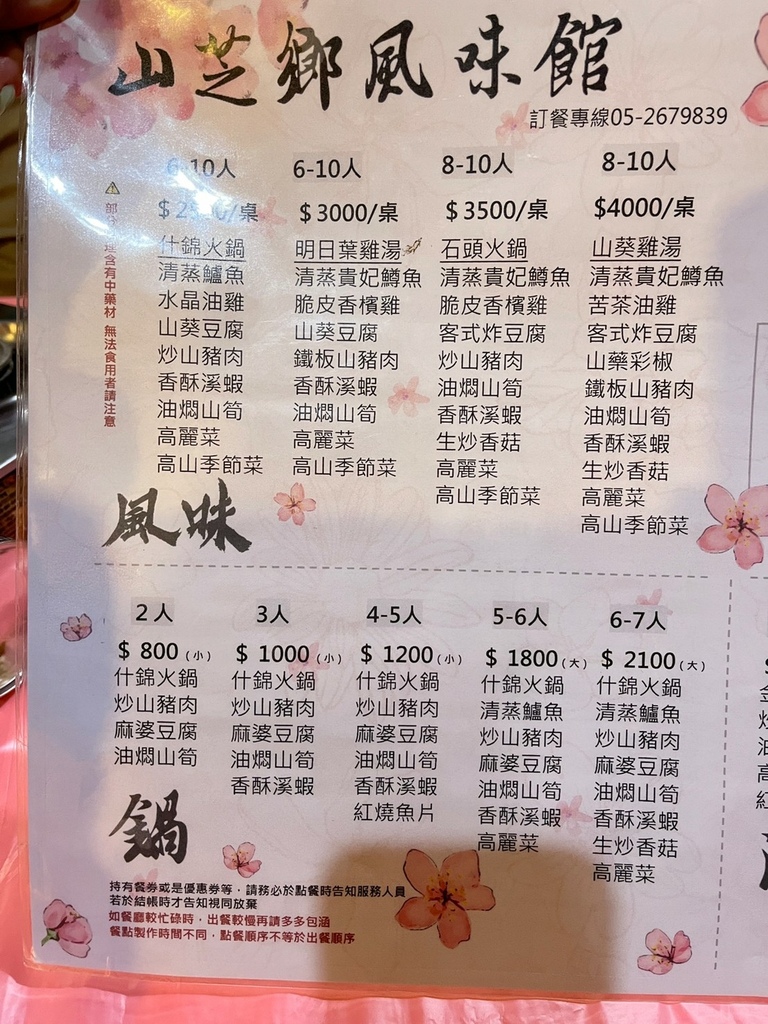 山芝鄉風味館
訂餐專線05-2679839
含有中藥材 無法食用者請注意
6-10人
/桌
什錦火鍋
清蒸鱸魚
水晶油雞
山葵豆腐
炒山豬肉
香酥溪蝦
油燜山筍
高麗菜
高山季節菜
6-10人
$3000/桌
明日葉雞湯
清蒸貴妃鱒魚
脆皮香檳雞
山葵豆腐
鐵板山豬肉
香酥溪蝦
油燜山筍
高麗菜
高山季節菜
8-10人
$3500/桌
石頭火鍋
清蒸貴妃鱒魚
脆皮香檳雞
客式炸豆腐
炒山豬肉
油燜山筍
香酥溪蝦
生炒香菇
高麗菜
高山季節菜
8-10人
$4000/桌
山葵雞湯
清蒸貴妃鱒魚
苦茶油雞
客式炸豆腐
山藥彩椒
鐵板山豬肉
油燜山筍
香酥溪蝦
生炒香菇
高麗菜
高山季節菜
風味
2人
$ 800(小)
什錦火鍋
炒山豬肉
麻婆豆腐
油燜山筍
3人
$ 1000(小)
什錦火鍋
炒山豬肉
麻婆豆腐
油燜山筍
香酥溪蝦
4-5人
$ 1200(小)
什錦火鍋
炒山豬肉
麻婆豆腐
油燜山筍
香酥溪蝦
紅燒魚片
5-6人
$ 1800(大)
什錦火鍋
清蒸鱸魚
炒山豬肉
麻婆豆腐
油燜山筍
香酥溪蝦
高麗菜
6-7人
$ 2100(大)
什錦火鍋
清蒸鱸魚
炒山豬肉
麻婆豆腐
油燜山筍
香酥溪蝦
生炒香菇
高麗菜
鍋
持有餐券或是優惠券等，請務必於點餐時告知服務人員
若於結帳時才告知視同放棄
如餐廳較忙碌時，出餐較慢再請多多包涵
餐點製作時間不同，點餐順序不等於出餐順序